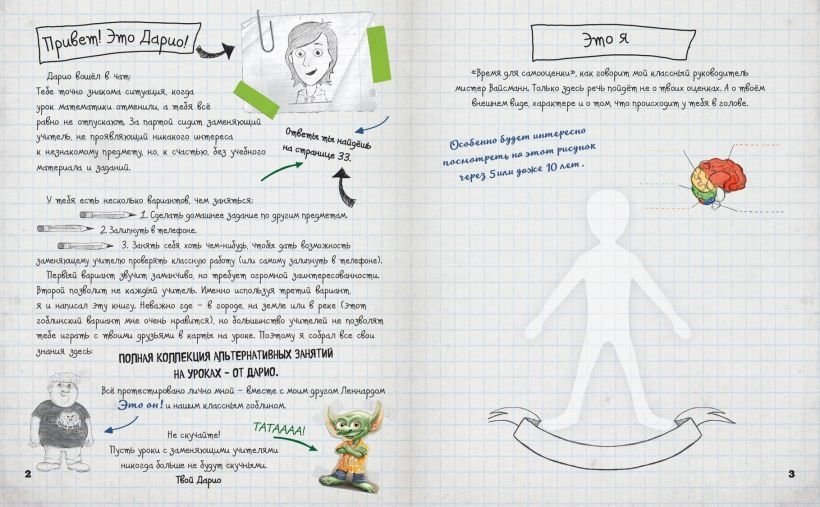 Привет! Это Дарио!
Дарио вошёл в чат:
Тебе точно знакома ситуация, когда
урок математики отменили, а тебя всё
равно не отпускают. За партой сидит заменяющий
учитель, не проявляющий никакого интереса
к незнакомому предмету, но, к счастью, без учебного
материала и заданий.
Ответы ты найдёшь
на странице 33.
У тебя есть несколько вариантов, чем заняться:
1. Сделать домашнее задание по другим предметам.
2. Залипнуть в телефоне.
3. Занять себя хоть чем-нибудь, чтобы дать возможность
заменяющему учителю проверять классную работу (или самому залипнуть в телефоне).
Первый вариант звучит заманчиво, но требует огромной заинтересованности.
Второй позволит не каждый учитель. Именно используя третий вариант,
я и написал эту книгу. Неважно где – в городе, на земле или в реке (Этот
гоблинский вариант мне очень нравится), но большинство учителей не позволят
тебе играть с твоими друзьями в карты на уроке. Поэтому я собрал все свои
знания здесь:
ПОЛНАЯ КОЛЛЕКЦИЯ АЛЬТЕРНАТИВНЫХ ЗАНЯТИЙ
НА УРОКАХ – ОТ ДАРИО.
Всё протестировано лично мной – вместе с моим другом Леннардом
Это он! и нашим классным гоблином.
ТАТАААА!
Не скучайте!
Пусть уроки с заменяющими учителями
никогда больше не будут скучными.
Твой Дарио
2
Это я
«Время для самооценки», как говорит мой классный руководитель
мистер Вайсманн. Только здесь речь пойдёт не о твоих оценках. А о твоём
внешнем виде, характере и о том, что происходит у тебя в голове.
Особенно будет интересно
посмотреть на этот рисунок
через 5 или даже 10 лет.
3